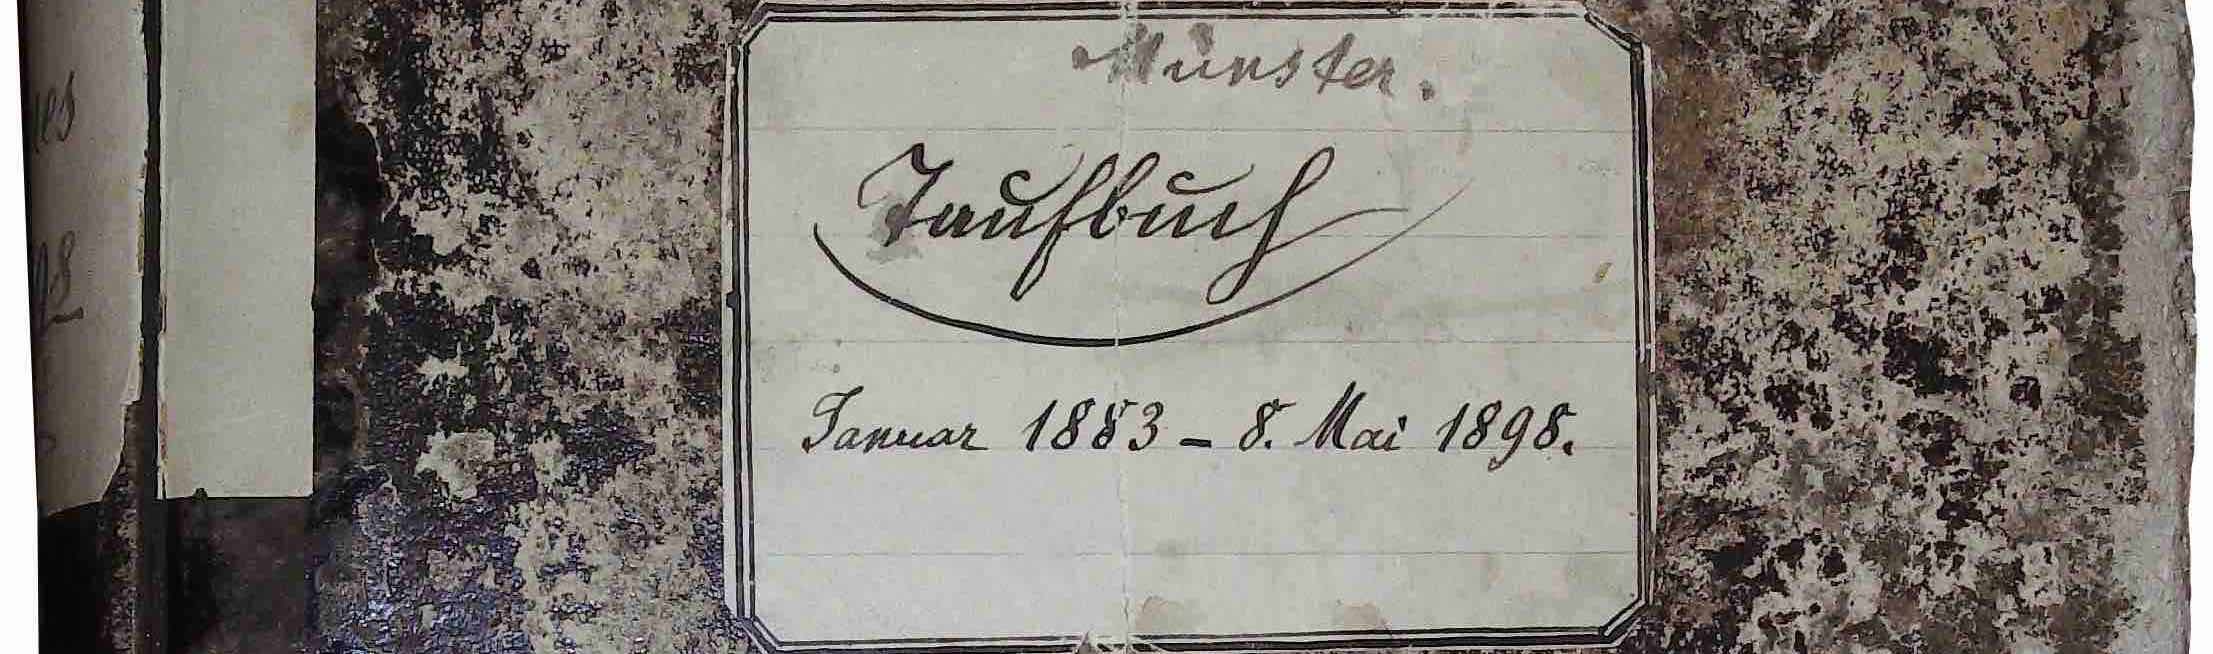 Münster.
Taufbuch
Januar 1883 – 8. Mai 1898.